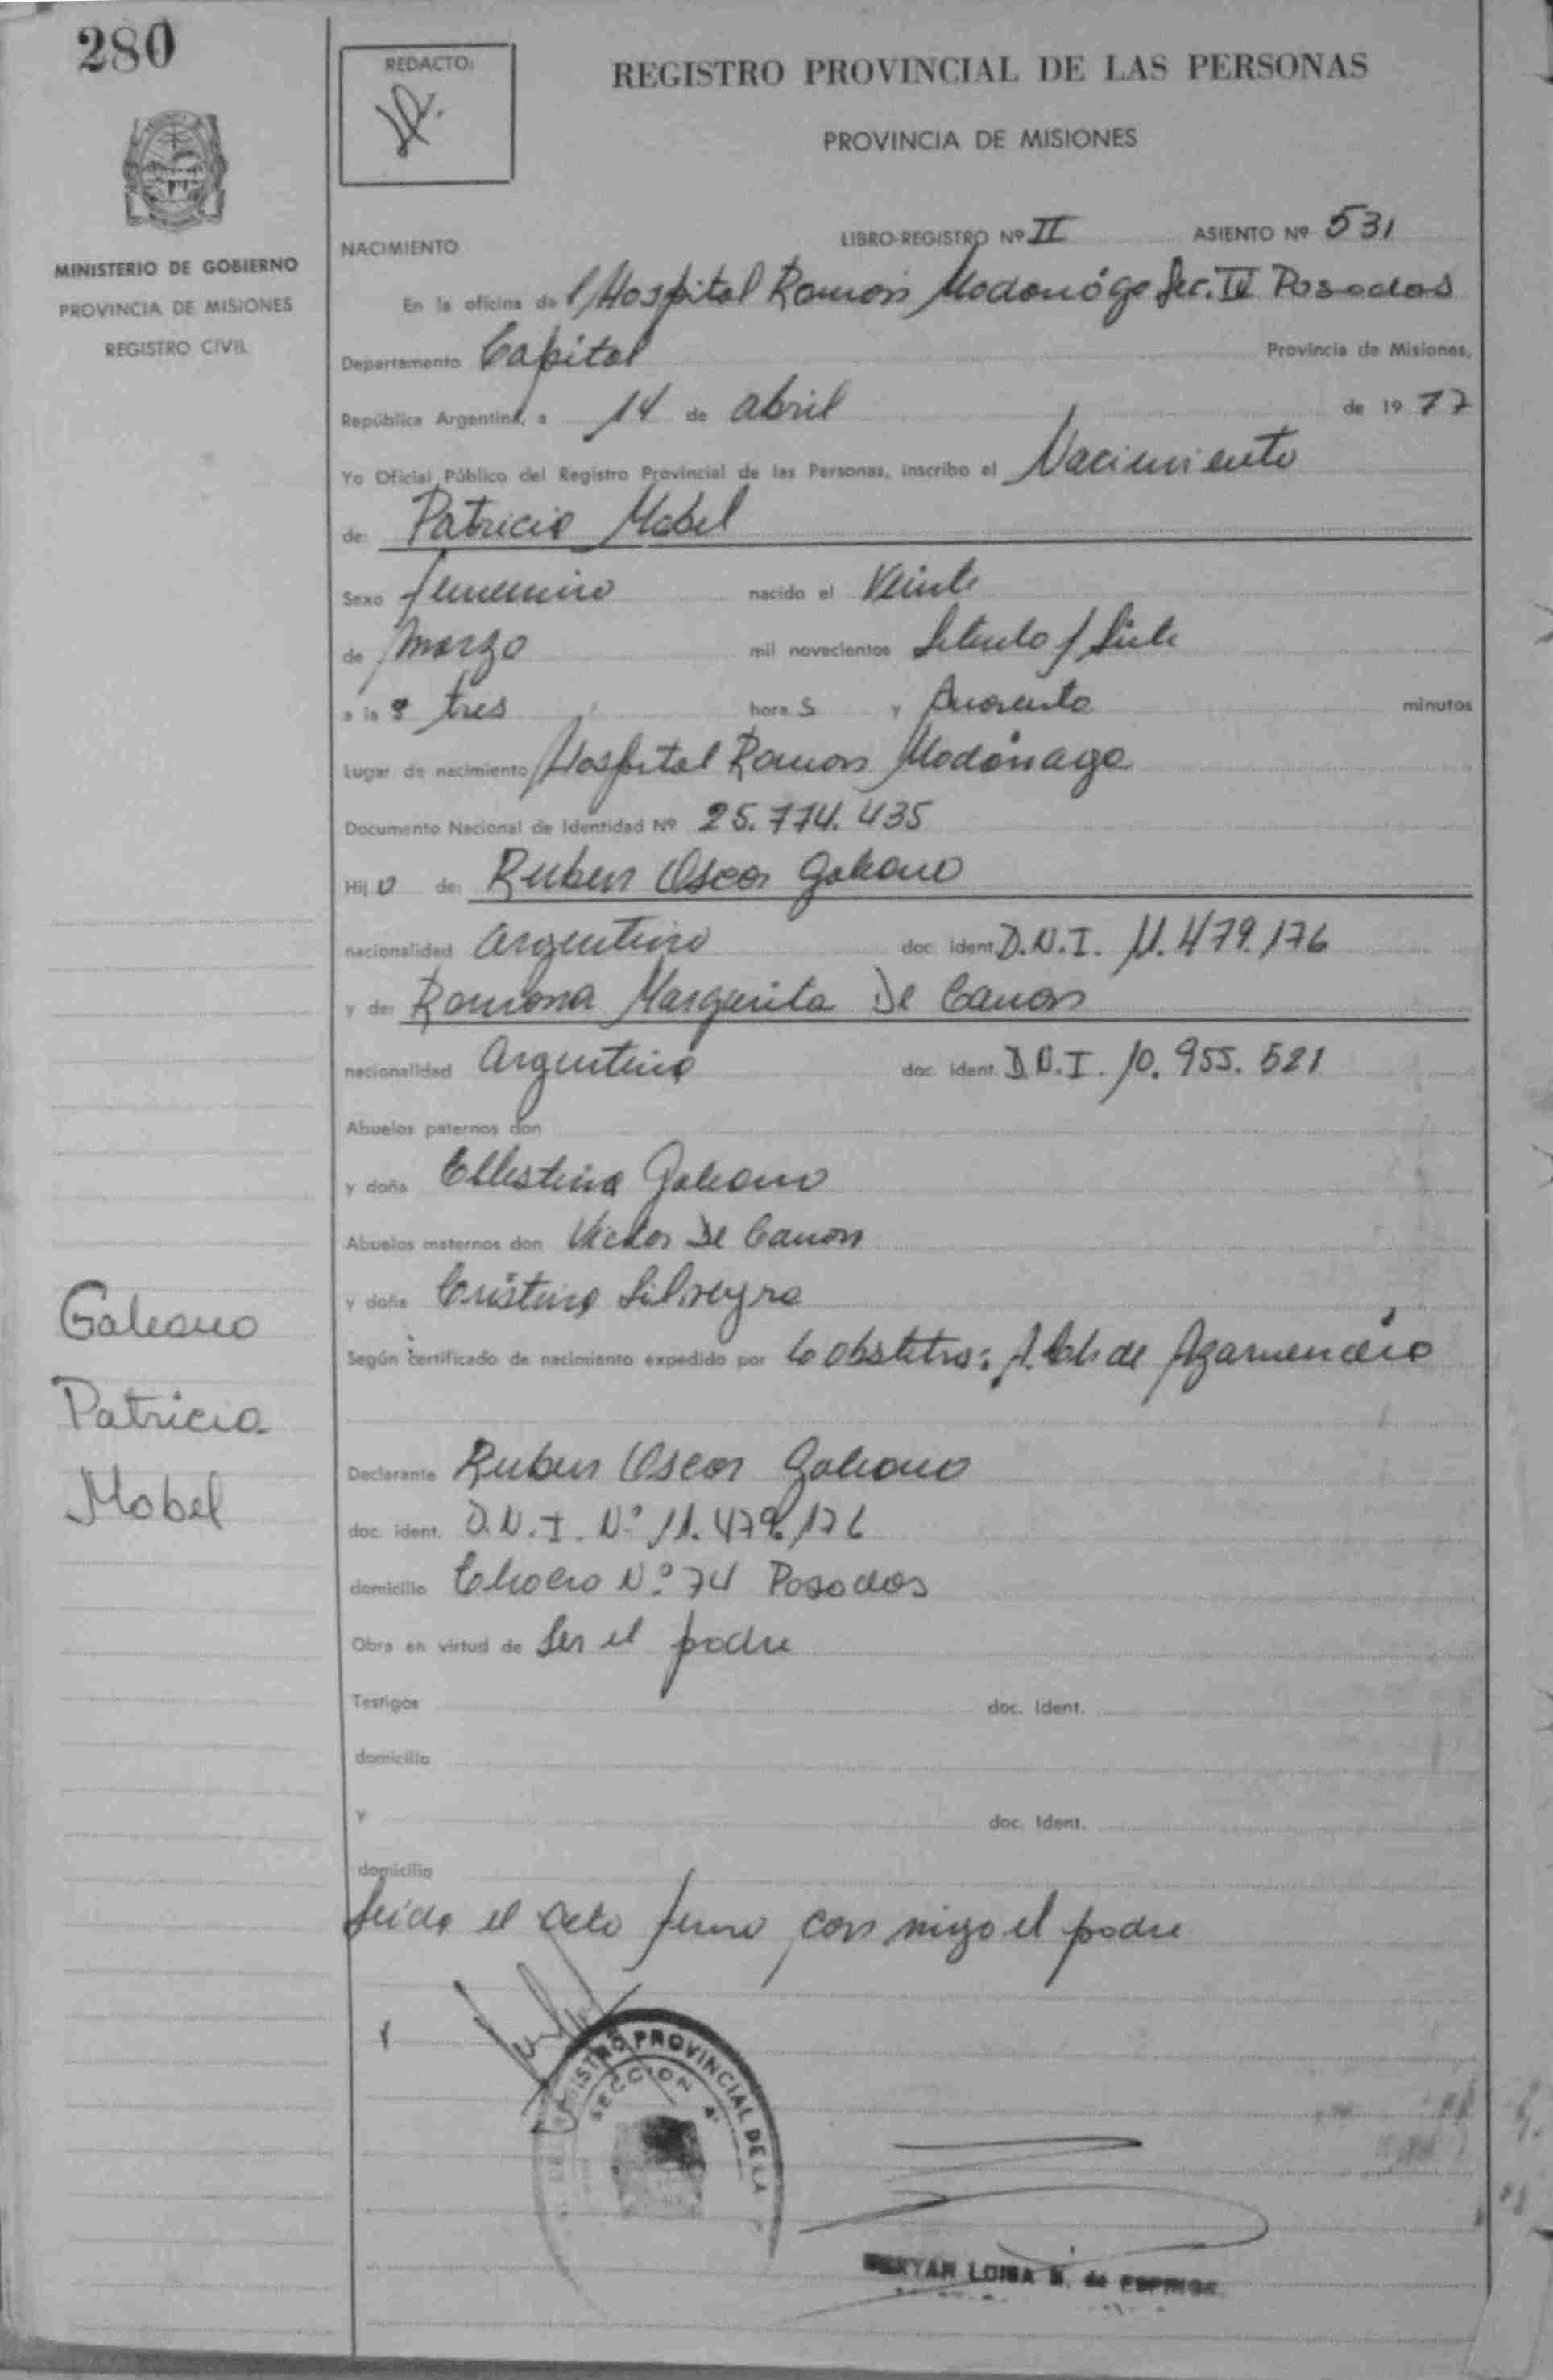 280
REDACTO:
REGISTRO PROVINCIAL DE LAS PERSONAS
PROVINCIA DE MISIONES
MINISTERIO DE GOBIERNO
PROVINCIA DE MISIONES
REGISTRO CIVIL
NACIMIENTO
LIBRO-REGISTRO Nº II ASIENTO Nº 531
En la oficina de l Hospital Ramon Madonógo Sec. IV Posadas
Departamento Capital Provincia de Misiones,
República Argentina, a 14 de abril de 19 77
Yo Oficial Público del Registro Provincial de las Personas, inscribo el Nacimiento
de: Patricia Mabel
Sexo femenino nacido el Veinte
de marzo mil novecientos Setenta y Siete
a la s tres hora s y Cuarenta minutos
Lugar de nacimiento Hospital Ramon Madónaga
Documento Nacional de Identidad Nº 25.774.435
Hij a de: Ruben Oscar Galeano
nacionalidad argentino doc. ident. D.N.I. 11.479.176
y de: Ramona Margarita De Canon
nacionalidad argentina doc. ident. D.N.I. 10.955.521
Abuelos paternos don
y doña Celestina Galeano
Abuelos maternos don Victor De Canon
y doña Cristina Silveyra
Según certificado de nacimiento expedido por la obstetra: de
Declarante Ruben Oscar Galeano
doc. ident. D.N.I. Nº 11.479.176
domicilio Nº 74 Posadas
Obra en virtud de Ser el padre
Testigos doc. Ident.
domicilio
y doc. Ident.
domicilio
Leida el acta firma con migo el padre
Galeano
Patricia
Mabel
REGISTRO PROVINCIAL DE LA
SECCION 4ª
LUISA de